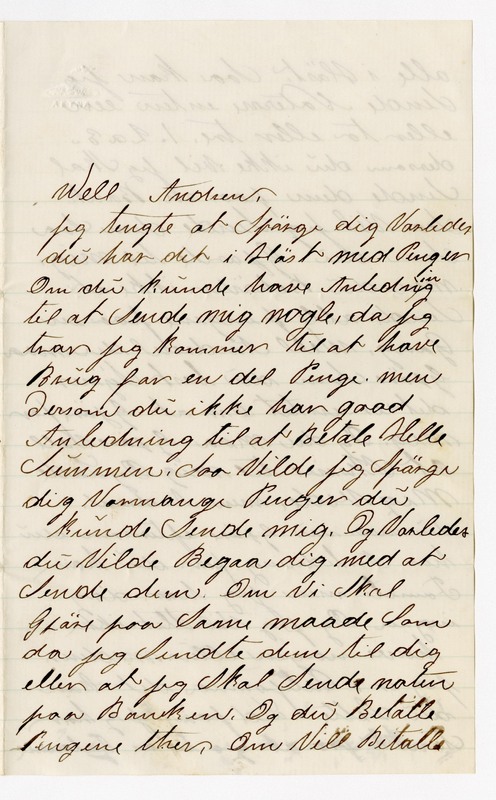 Well Andrew,
jeg tengte at Spärge dig Varledes
du har det i Häst med Penger
Om du kunde have Anledning
til at Sende mig nogle, da jeg
trar jeg kommer til at have
Brug far en del Penge. men
Dersom du ikke har good
Anledning til at Betale Helle
Summen. Saa Vilde jeg Spärge
dig Vormange Penger du
kunde Sende mig. Og Varledes
du Vilde Begaa dig med at
Sende dem. Om Vi Skal
Gjäre paa Same maade Som
da jeg Sendte dem til dig
eller at jeg Skal Sende noten
paa Banken. Og du Betalle
Pengene ther, Om Vill Betalle